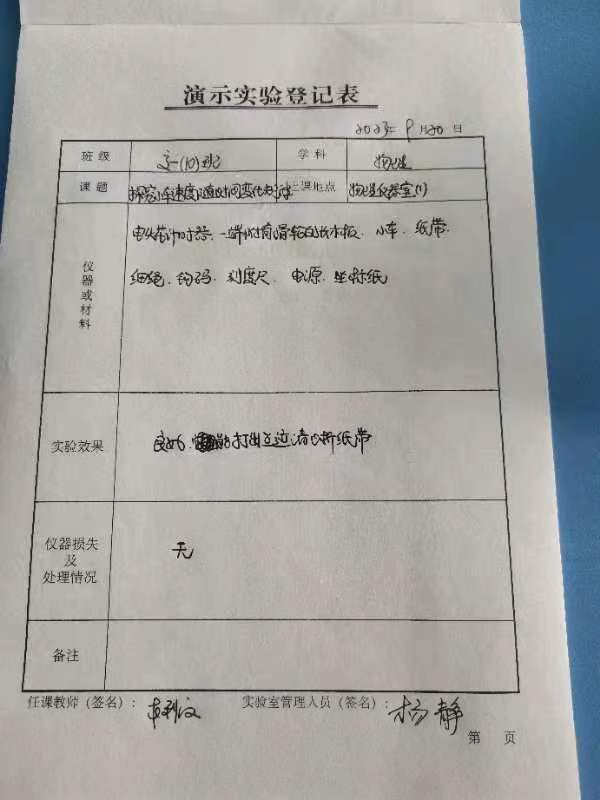 演示实验登记表
2023年 9 月20 日
班 级 高一(10)班 学 科 物理
课 题 探究小车速度随时间变化规律 上课地点 物理仪器室(1)
仪器或材料 电火花计时器、一端附有滑轮的长木板、小车、纸带、
细绳、钩码、刻度尺、电源、坐标纸
实验效果 良好、能打出点迹清晰纸带
仪器损失及处理情况 无
备注
任课教师（签名）： 实验室管理人员（签名）：杨静
第 页